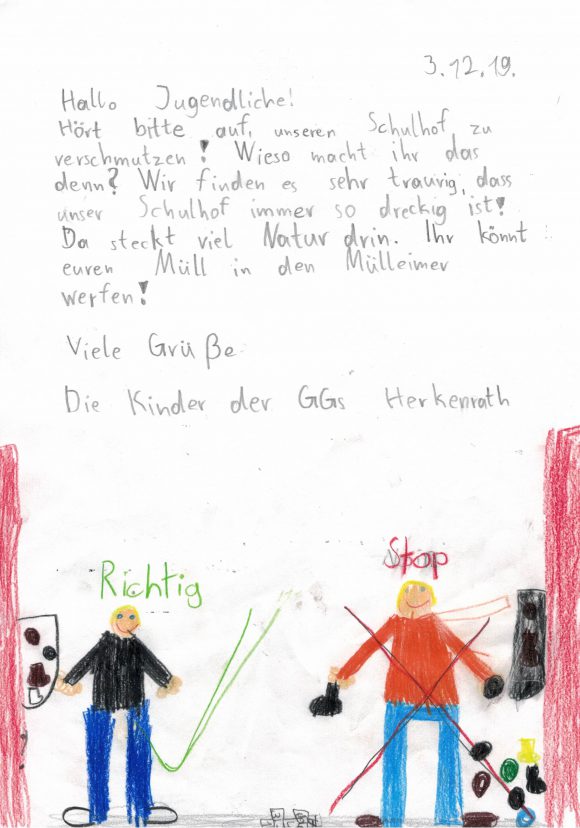 3.12.19.
Hallo Jugendliche!
Hört bitte auf, unseren Schulhof zu
verschmutzen! Wieso macht ihr das
denn? Wir finden es sehr traurig, dass
unser Schulhof immer so dreckig ist!
Da steckt viel Natur drin. Ihr könnt
euren Müll in den Mülleimer
werfen!
Viele Grüße
Die Kinder der GGs Herkenrath
Stop
Richtig